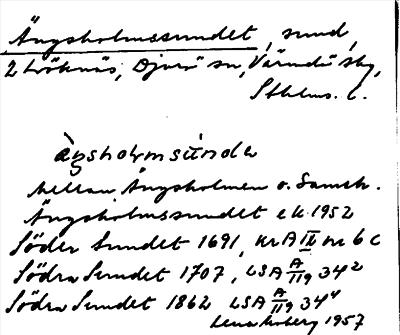 Ängsholmssundet, sund,
2 Löknäs, Djurö sn, Värmdö skg,
Sthlms. l.
àŋshɷlmsúndə
Mellan Ängsholmen o. Samsh.
Ängsholmssundet ek. 1952
Söder Sundet 1691, Kr A IX nr 6 c
Södra Sundet 1707, LSA A/119 34²
Södra Sundet 1862 LSA A/119 34⁴
Lena Moberg 1957